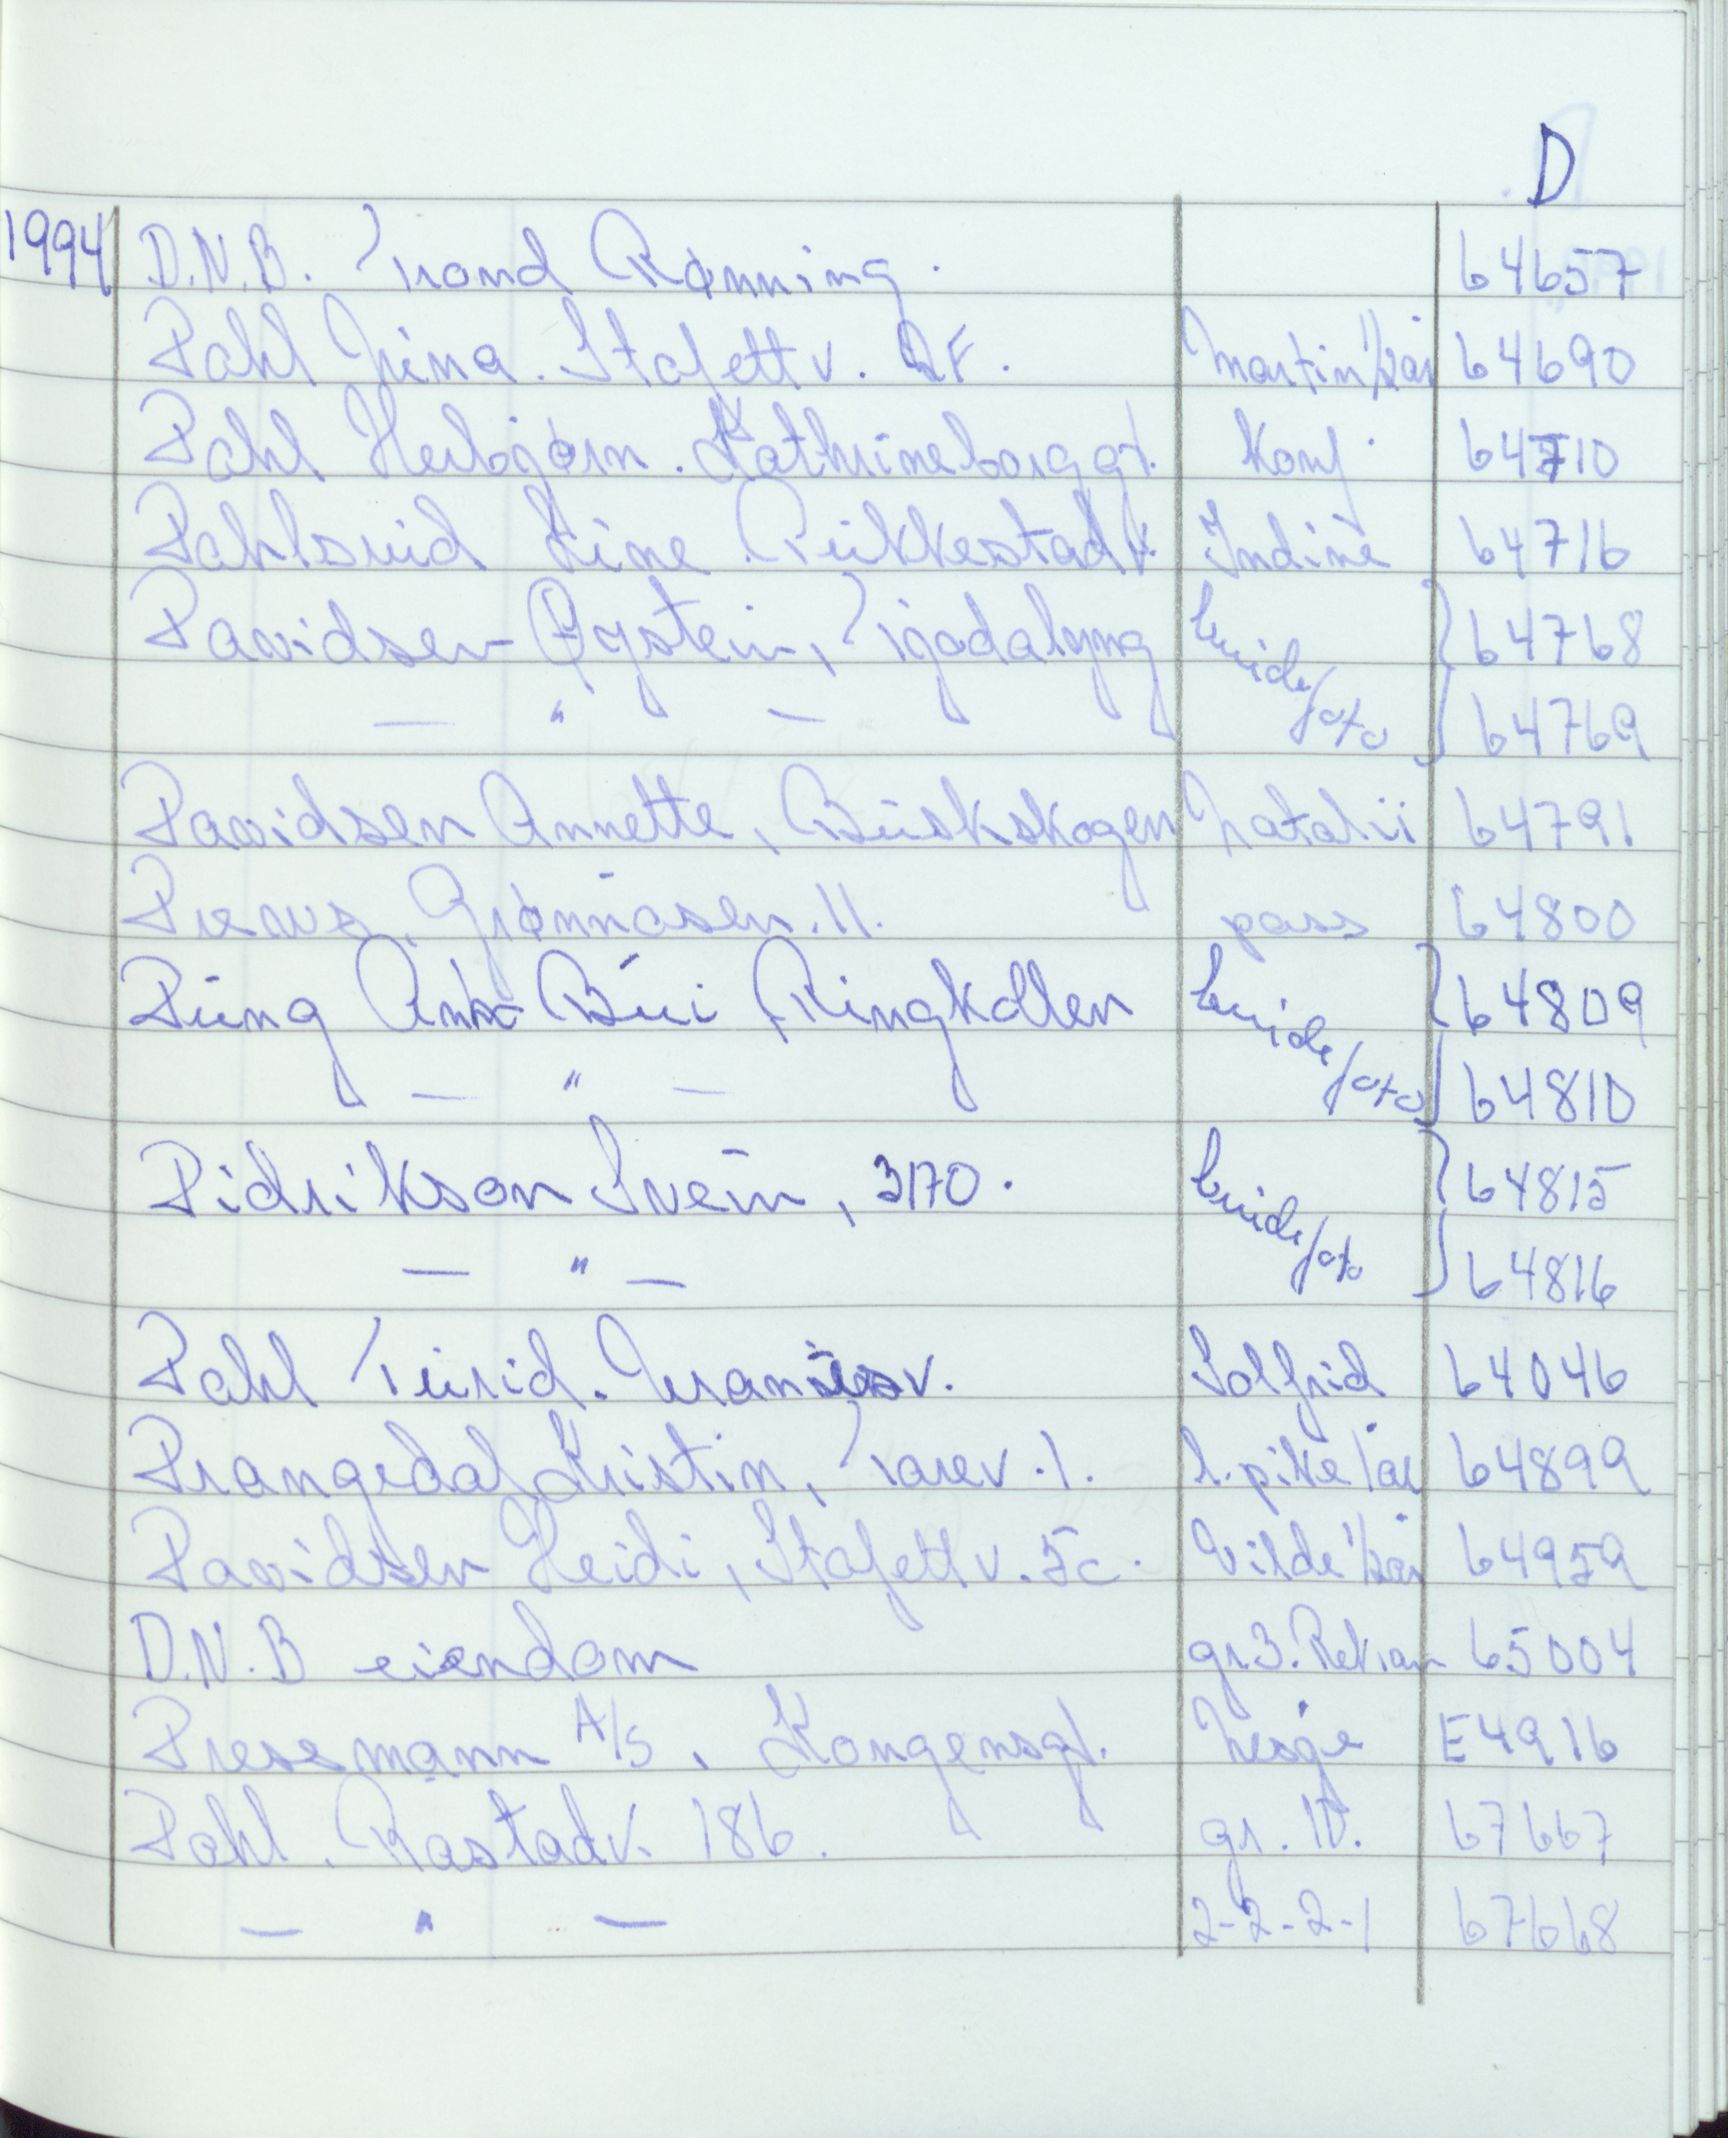 D
1994 D.N.B. Trond Rønning. 64657
Dahl Nina. Stafettv. 2F. Martin 1/2 år 64690
Dahl Herbjørn. Kathrineborggt. Konf. 64710
Dahlsveid Line. Rukkestadv. Indine 64716
Davidsen Øystein, Tigadalyng brude 64768
— " — foto 64769
Davidsen Annette, Buskskogen Natalii 64791
Drews. Grønnåsen. 11. pass 64800
Dung Anh Bui Ringkollen brude 64809
— " — foto 64810
Didrikson Svein, 3170. brude 64815
— " — foto 64816
Dahl Turid. Solfrid 64046
Drangedal Kristin, Tarev. 1. l. pike 1 år 64899
Davidsen Heidi, Stafettv. 5c. Vilde 1/2 år 64959
D.N.B eiendom gr. 3. 65004
Dressmann A/S, Kongensgt. E4916
Dahl. Rastadv. 186. gr. 10. 67667
— " — 2-2-2-1 67668